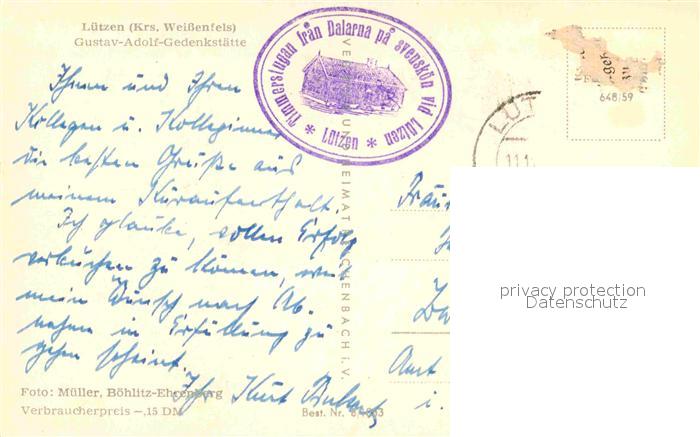 Lützen (Krs. Weißenfels)
Gustav-Adolf-Gedenkstätte
Timmerstugan från Dalarna på svenskön vid Lützen
* Lützen *
648/59
LÜT
11.1
Ihnen und Ihren
Kollegen u. Kolleginnen
die besten Grüße aus
meinem Kuraufenthalt.
Ich glaube, vollen Erfolg
verbuchen zu können, weil
mein Wunsch nach Ab-
nahme in Erfüllung zu
gehen scheint.
Ihr Kurt
Foto: Müller, Böhlitz-Ehrenberg
Verbraucherpreis –,15 DM
Best. Nr.
HEIMAT REICHENBACH i. V.
Amt
i.
privacy protection
Datenschutz